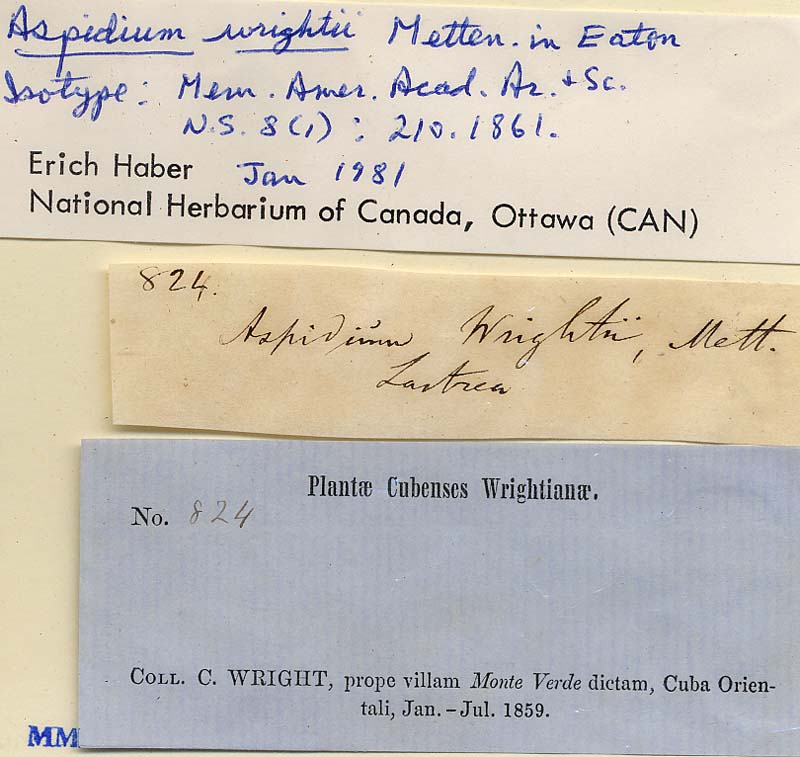 Aspidium wrightii Metten. in Eaton
Isotype: Mem. Amer. Acad. Ar. + Sc.
N.S. 8(1): 210. 1861.
Erich Haber Jan 1981
National Herbarium of Canada, Ottawa (CAN)
824.
Aspidium Wrightii, Mett.
Lastrea
Plantæ Cubenses Wrightianæ.
No. 824
Coll. C. WRIGHT, prope villam Monte Verde dictam, Cuba Orien-
tali, Jan. – Jul. 1859.
MM